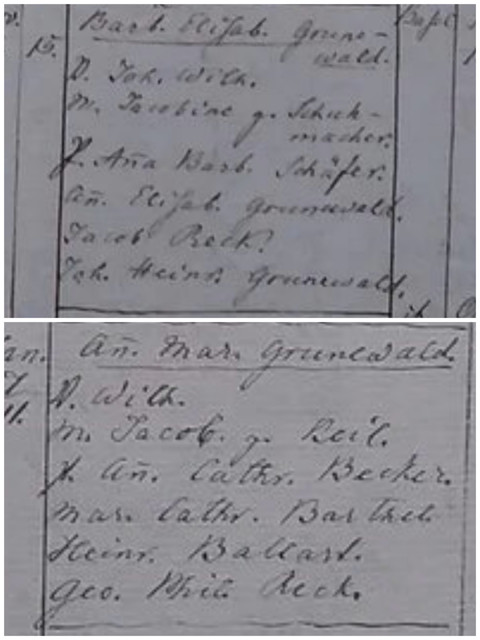 Barb. Elisab. Grune-
wald.
15.
V. Joh. Wilh.
M. Jacobine g. Schuh-
macher.
P. Aña Barb. Schäfer.
Añ. Elisab. Grunewald.
Jacob Reck.
Joh. Heinr. Grunewald.
Añ. Mar. Grunewald.
V. Wilh.
11.
M. Jacob. g. Keil.
P. Añ. Cathr. Becker.
Mar. Cathr. Barthel
Heinr. Ballart.
Geo. Phil. Reck.